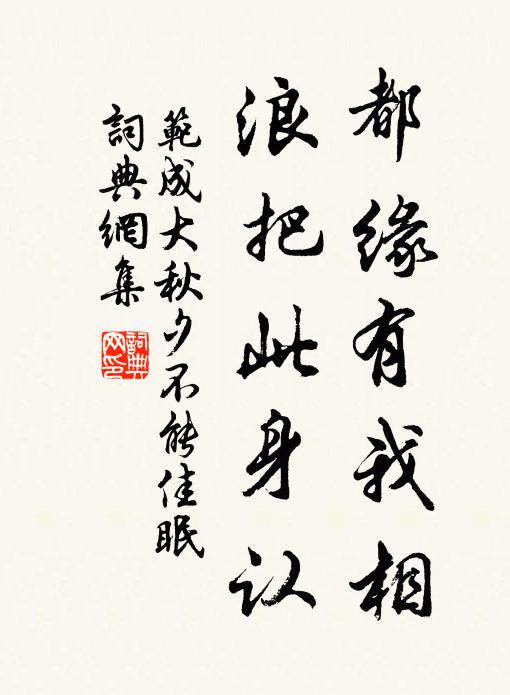 都緣有我相
浪把此身认
範成大秋夕不能佳眠
詞典網集
詞典网印